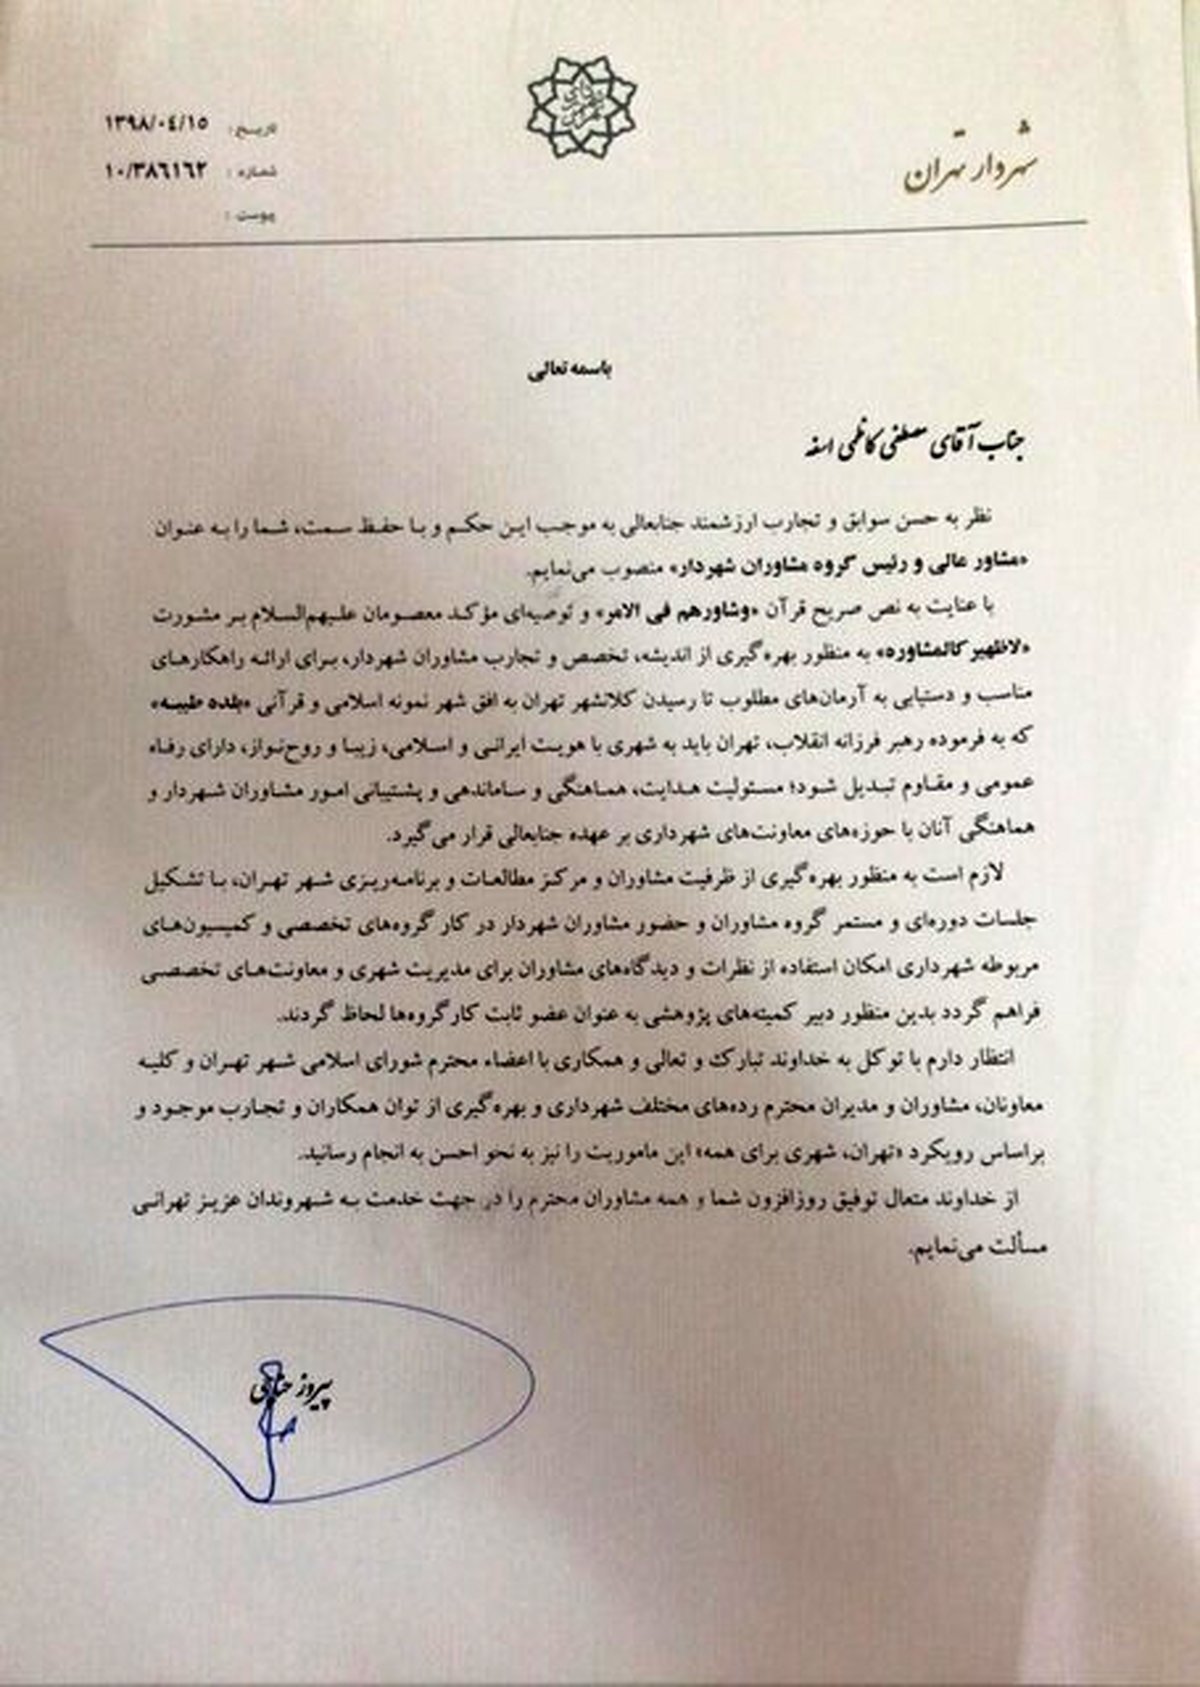 شهردار تهران
تاریخ: ۱۳۹۸/۰٤/۱۵
شماره: ۱۰/۳۸٦۱٦۲
پیوست:
باسمه تعالی
جناب آقای مصطفی کاظمی اسفه
نظر به حسن سوابق و تجارب ارزشمند جنابعالی به موجب این حکم و با حفظ سمت، شما را به عنوان
«مشاور عالی و رئیس گروه مشاوران شهردار» منصوب می‌نمایم.
با عنایت به نص صریح قرآن «وشاورهم فی الامر» و توصیه‌ای مؤکد معصومان علیهم‌السلام بر مشورت
«لاظهیر کالمشاوره» به منظور بهره‌گیری از اندیشه، تخصص و تجارب مشاوران شهردار، برای ارائه راهکارهای
مناسب و دستیابی به آرمان‌های مطلوب تا رسیدن کلانشهر تهران به افق شهر نمونه اسلامی و قرآنی «بلده طیبه»
که به فرموده رهبر فرزانه انقلاب، تهران باید به شهری با هویت ایرانی و اسلامی، زیبا و روح‌نواز، دارای رفاه
عمومی و مقاوم تبدیل شود؛ مسئولیت هدایت، هماهنگی و ساماندهی و پشتیبانی امور مشاوران شهردار و
هماهنگی آنان با حوزه‌های معاونت‌های شهرداری بر عهده جنابعالی قرار می‌گیرد.
لازم است به منظور بهره‌گیری از ظرفیت مشاوران و مرکز مطالعات و برنامه‌ریزی شهر تهران، با تشکیل
جلسات دوره‌ای و مستمر گروه مشاوران و حضور مشاوران شهردار در کار گروه‌های تخصصی و کمیسیون‌های
مربوطه شهرداری امکان استفاده از نظرات و دیدگاه‌های مشاوران برای مدیریت شهری و معاونت‌های تخصصی
فراهم گردد بدین منظور دبیر کمیته‌های پژوهشی به عنوان عضو ثابت کارگروه‌ها لحاظ گردند.
انتظار دارم با توکل به خداوند تبارک و تعالی و همکاری با اعضاء محترم شورای اسلامی شهر تهران و کلیه
معاونان، مشاوران و مدیران محترم رده‌های مختلف شهرداری و بهره‌گیری از توان همکاران و تجارب موجود و
براساس رویکرد «تهران، شهری برای همه» این ماموریت را نیز به نحو احسن به انجام رسانید.
از خداوند متعال توفیق روزافزون شما و همه مشاوران محترم را در جهت خدمت به شهروندان عزیز تهرانی
مسألت می‌نمایم.
پیروز حناچی